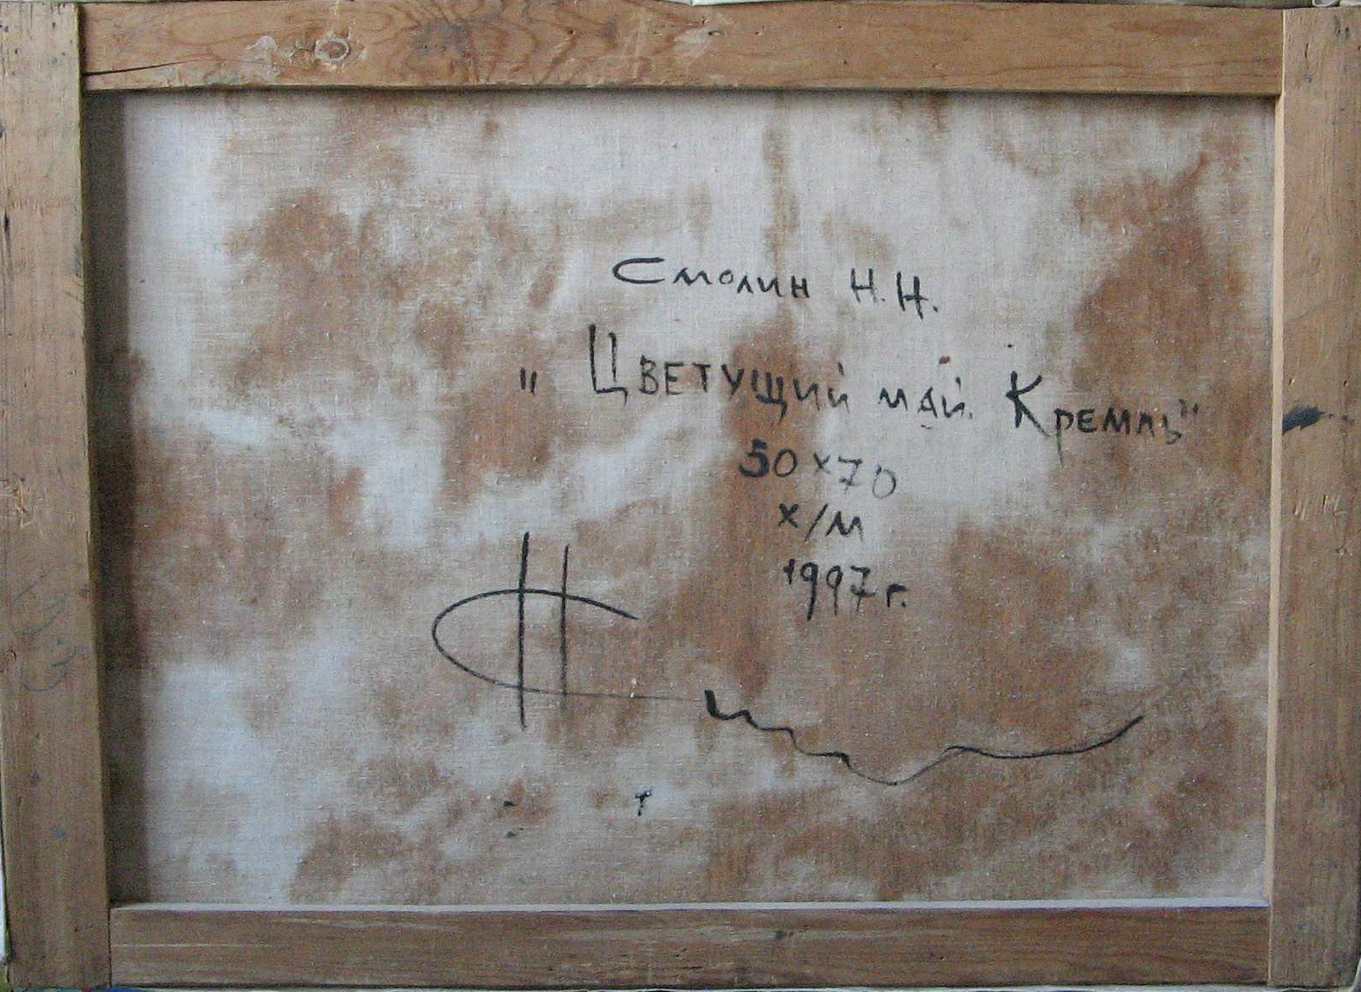 Смолин Н.Н.
"Цветущий май. Кремль"
50х70
х/м
1997г.